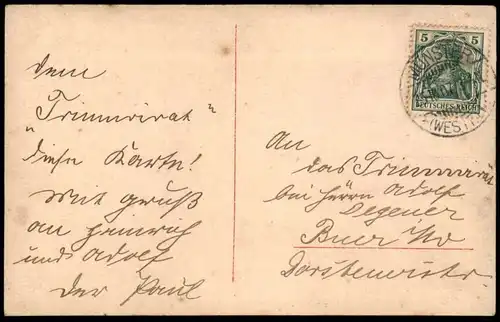 dem
„Triumvirat“
diese Karte!
Mit Gruß
an Heinrich
und Adolf
der Paul
5 5
DEUTSCHES REICH
MÜNSTER
(WESTF.)
An
das Triumvirat
bei Herrn Adolf
Degener
Buer i/W
Dorstenerstr.